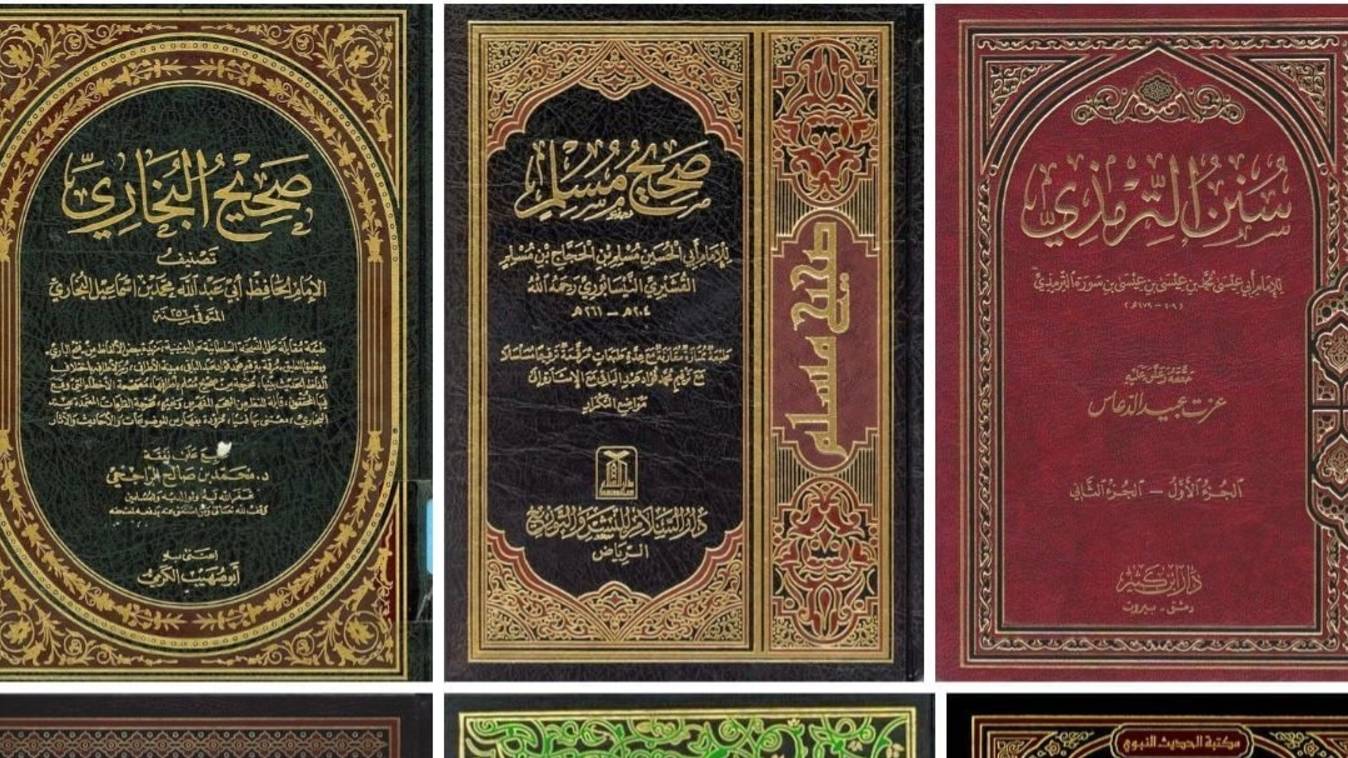 صَحِيحُ البُخَارِيِّ
تَصْنِيفُ
الإمَام الحَافِظ أبي عَبد الله محمَّد بن إسماعيل البُخاريّ
المتوفى سنة ٢٥٦
د. محمَّد بن صَالح الراجحي
اعتنى به
أبو صُهَيْب الكَرمي
صَحِيحُ مُسْلِم
لِلإمَام أبي الحُسَين مُسْلِم بْنِ الحَجَّاج بْنِ مُسْلِم
القُشَيْرِيّ النَّيْسَابُورِيّ رَحِمَهُ الله
٢٠٤هـ — ٢٦١هـ
مَع تَرقيم مُحَمَّد فُؤاد عَبد البَاقي مَعَ الإستدراك
مَوَاضِع التَّكْرَار
دَارُ السَّلَامِ لِلنَّشْرِ وَالتَّوْزِيع
الرِّيَاض
صحيح مسلم
سُنَنُ التِّرْمِذِيِّ
لِلإِمَام أبي عيسى محمَّد بن عيسى بن عيسى بن سَورَة الترمذيّ
حقّقه وعلّق عليه
عزت عبيد الدعاس
الجزء الأوّل — الجزء الثاني
دَارُ ابنِ كثير
دمشق - بيروت
مكتبة الحديث النبوي